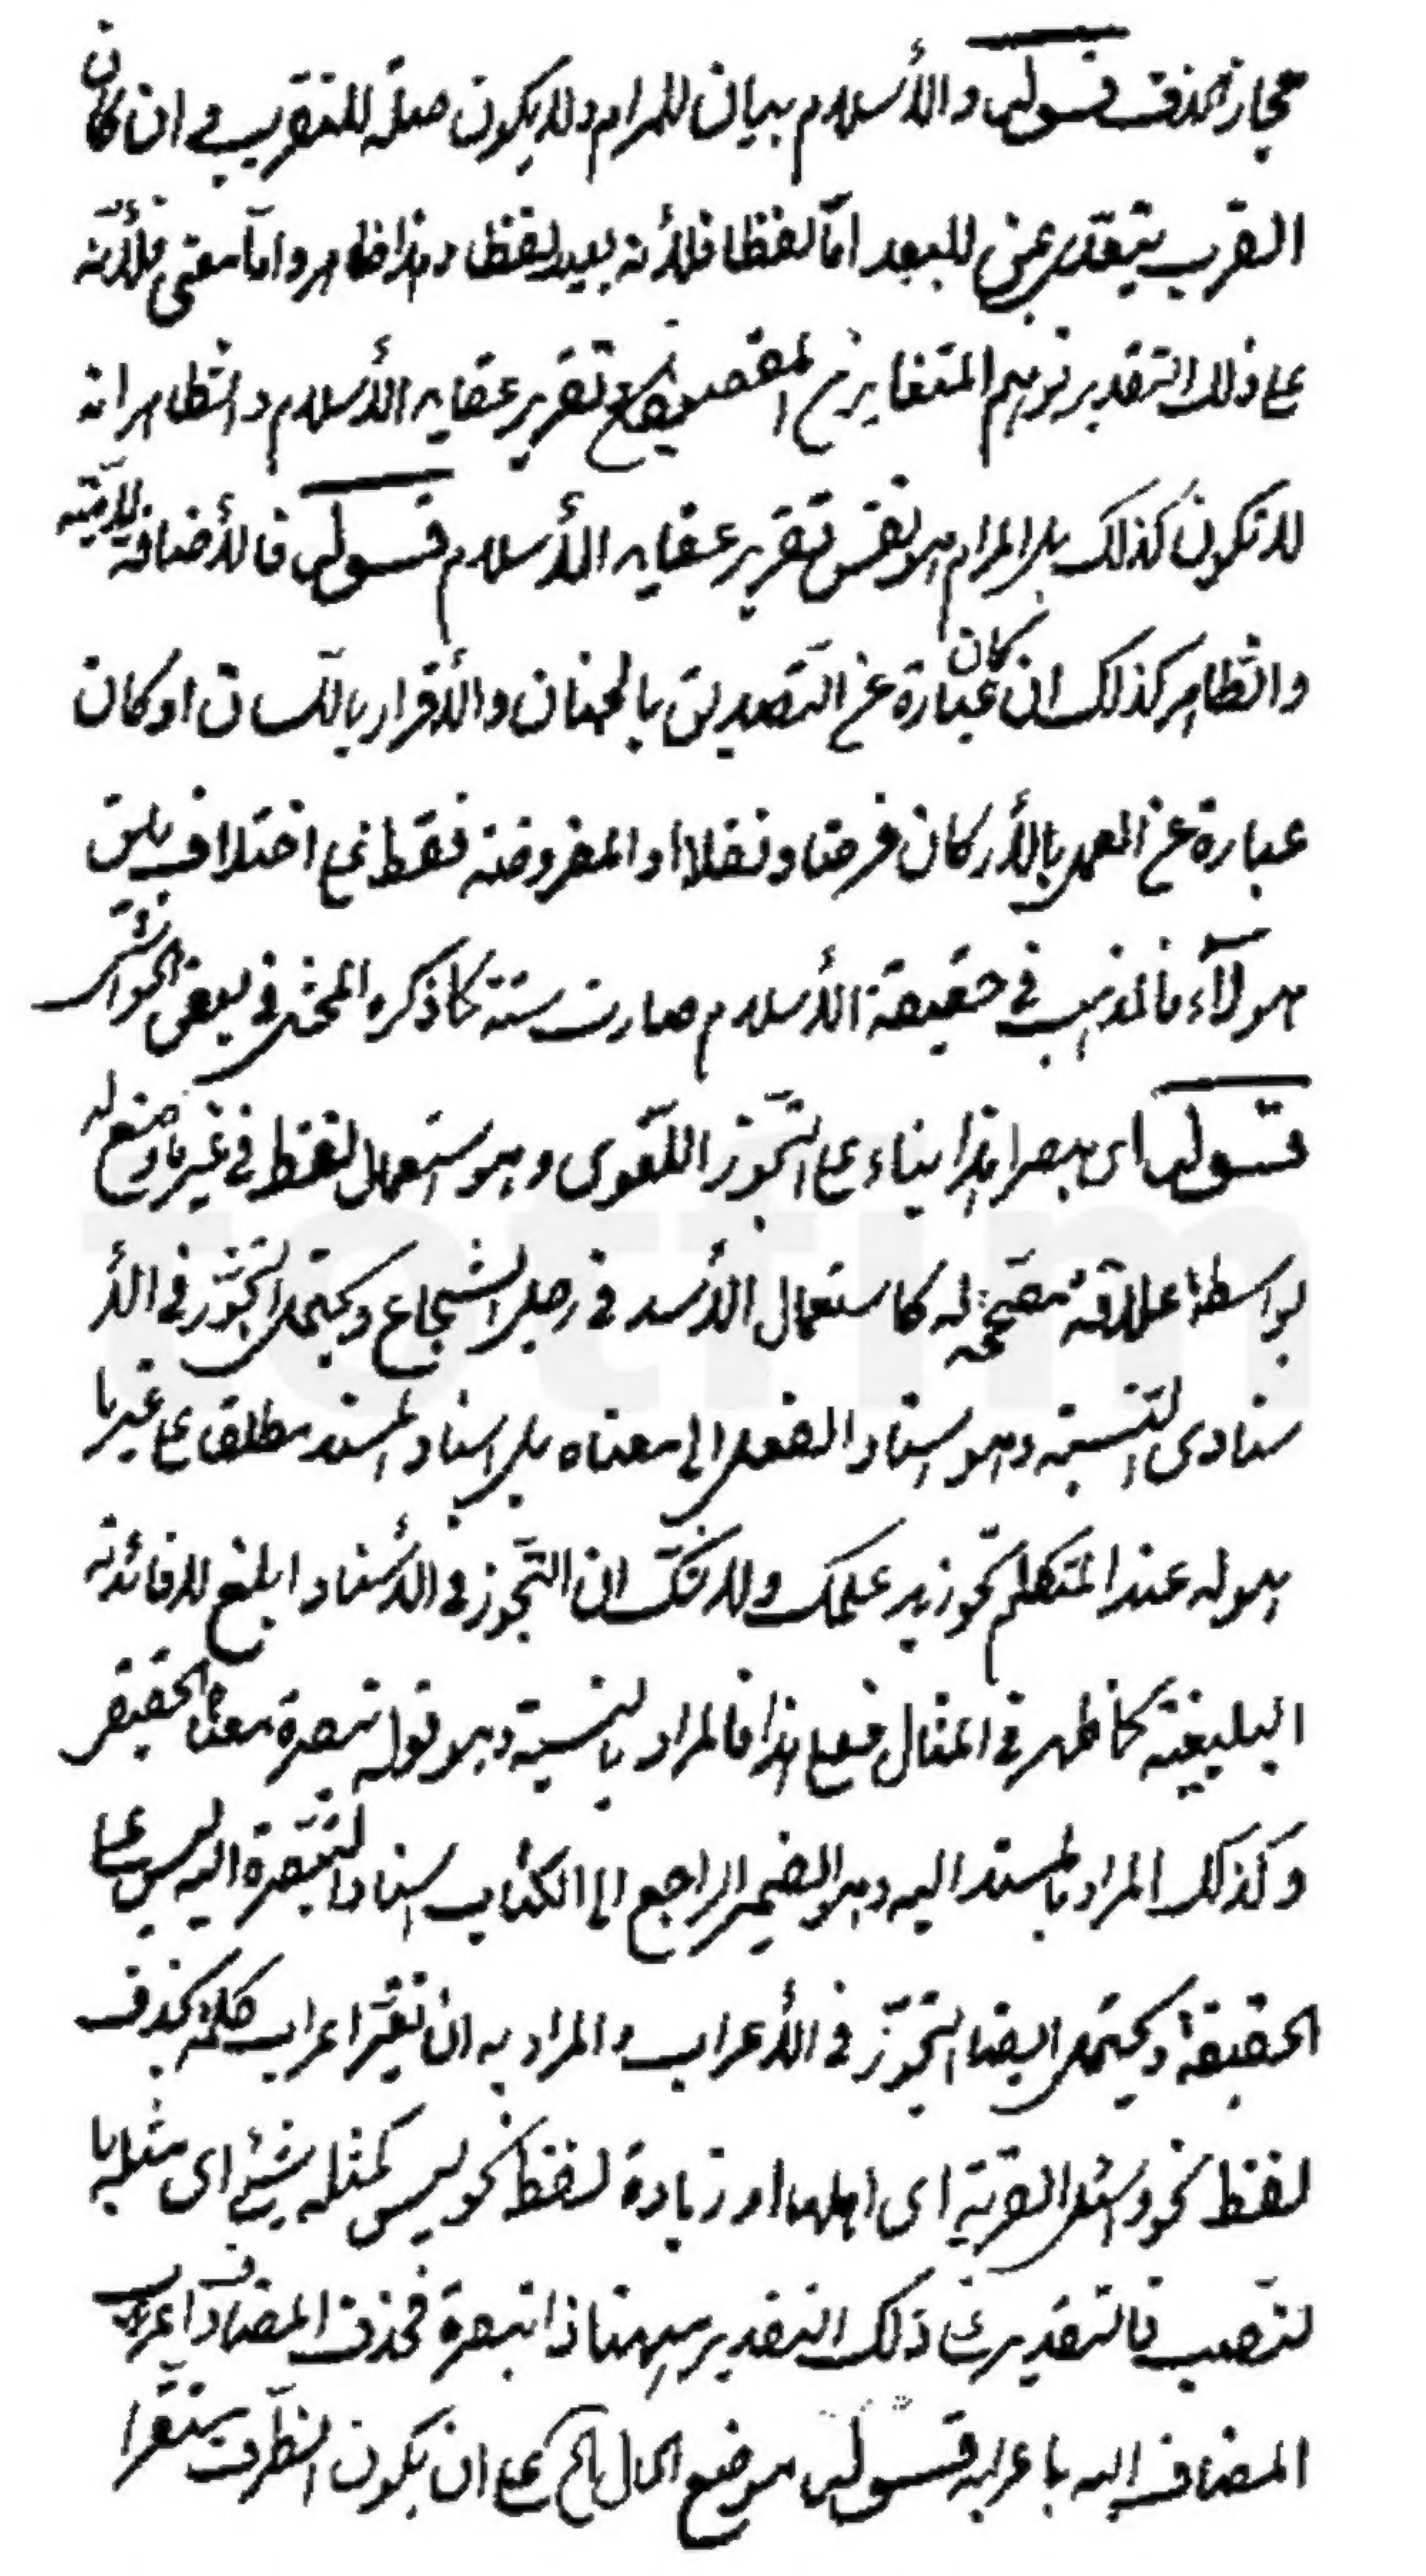 مجاز الحذف قوله والأسلام بيان للمرام ولا يكون صلة للتقريب ان كان
القرب يتعدى بمن للبعد امّا لفظا فلأنه بعيد لفظا وهذا ظاهر وامّا معنى فلأنّه
على ذلك التقدير توهم المتغاير من المقصد مع تقرير عقايد الأسلام والظاهر انه
لا تكون كذلك بل المرام هو نفس تقرير عقايد الأسلام قوله فالأضافة لاميّة
والظاهر كذلك ان كان عبارة عن التّصديق بالجنان والأقرار باللّسان او كان
عبارة عن العمل بالأركان فرضا ونفلا او المفروضة فقط على اختلاف بين
هولآء فالمذهب في حقيقة الأسلام صارت ستة كما ذكره المحشى في بعض الحواشى
قوله اى مبصرا هذا بناء على التّجوز اللّغوى وهو استعمال لفظ في غير ما وضع له
بواسطة علاقة مصحّحة له كاستعمال الأسد في رجل الشجاع ويحتمل التجوّز في الأ
سنادى النسبة وهو اسناد الفعل الى معناه بل اسناد المسند مطلقا على غير ما
هو له عند المتكلم نحو زيد علمك ولا شكّ ان التّجوز في الأسناد ابلغ لافائدته
البليغة كما ظهر في المثال فعلى هذا فالمراد بالنسبة وهو قوله تبصرة معناه الحقيقى
وكذلك المراد بالمسند اليه وهو الضمير الراجع الى الكتاب اسناد التّبصرة اليه ليس على
الحقيقة ويحتمل ايضا التجوّز في الأعراب والمراد به ان تغيّر اعراب كلمة بحذف
لفظ نحو واسئل القرية اى اهلها او زيادة لفظ نحو ليس كمثله شئ اى مثله با
لنّصب فالتقدير على ذلك التقدير ههنا ذا تبصرة فحذف المضاف واعرب
المضاف اليه باعرابه قوله موضع الحال على ان يكون الظّرف مستقرا